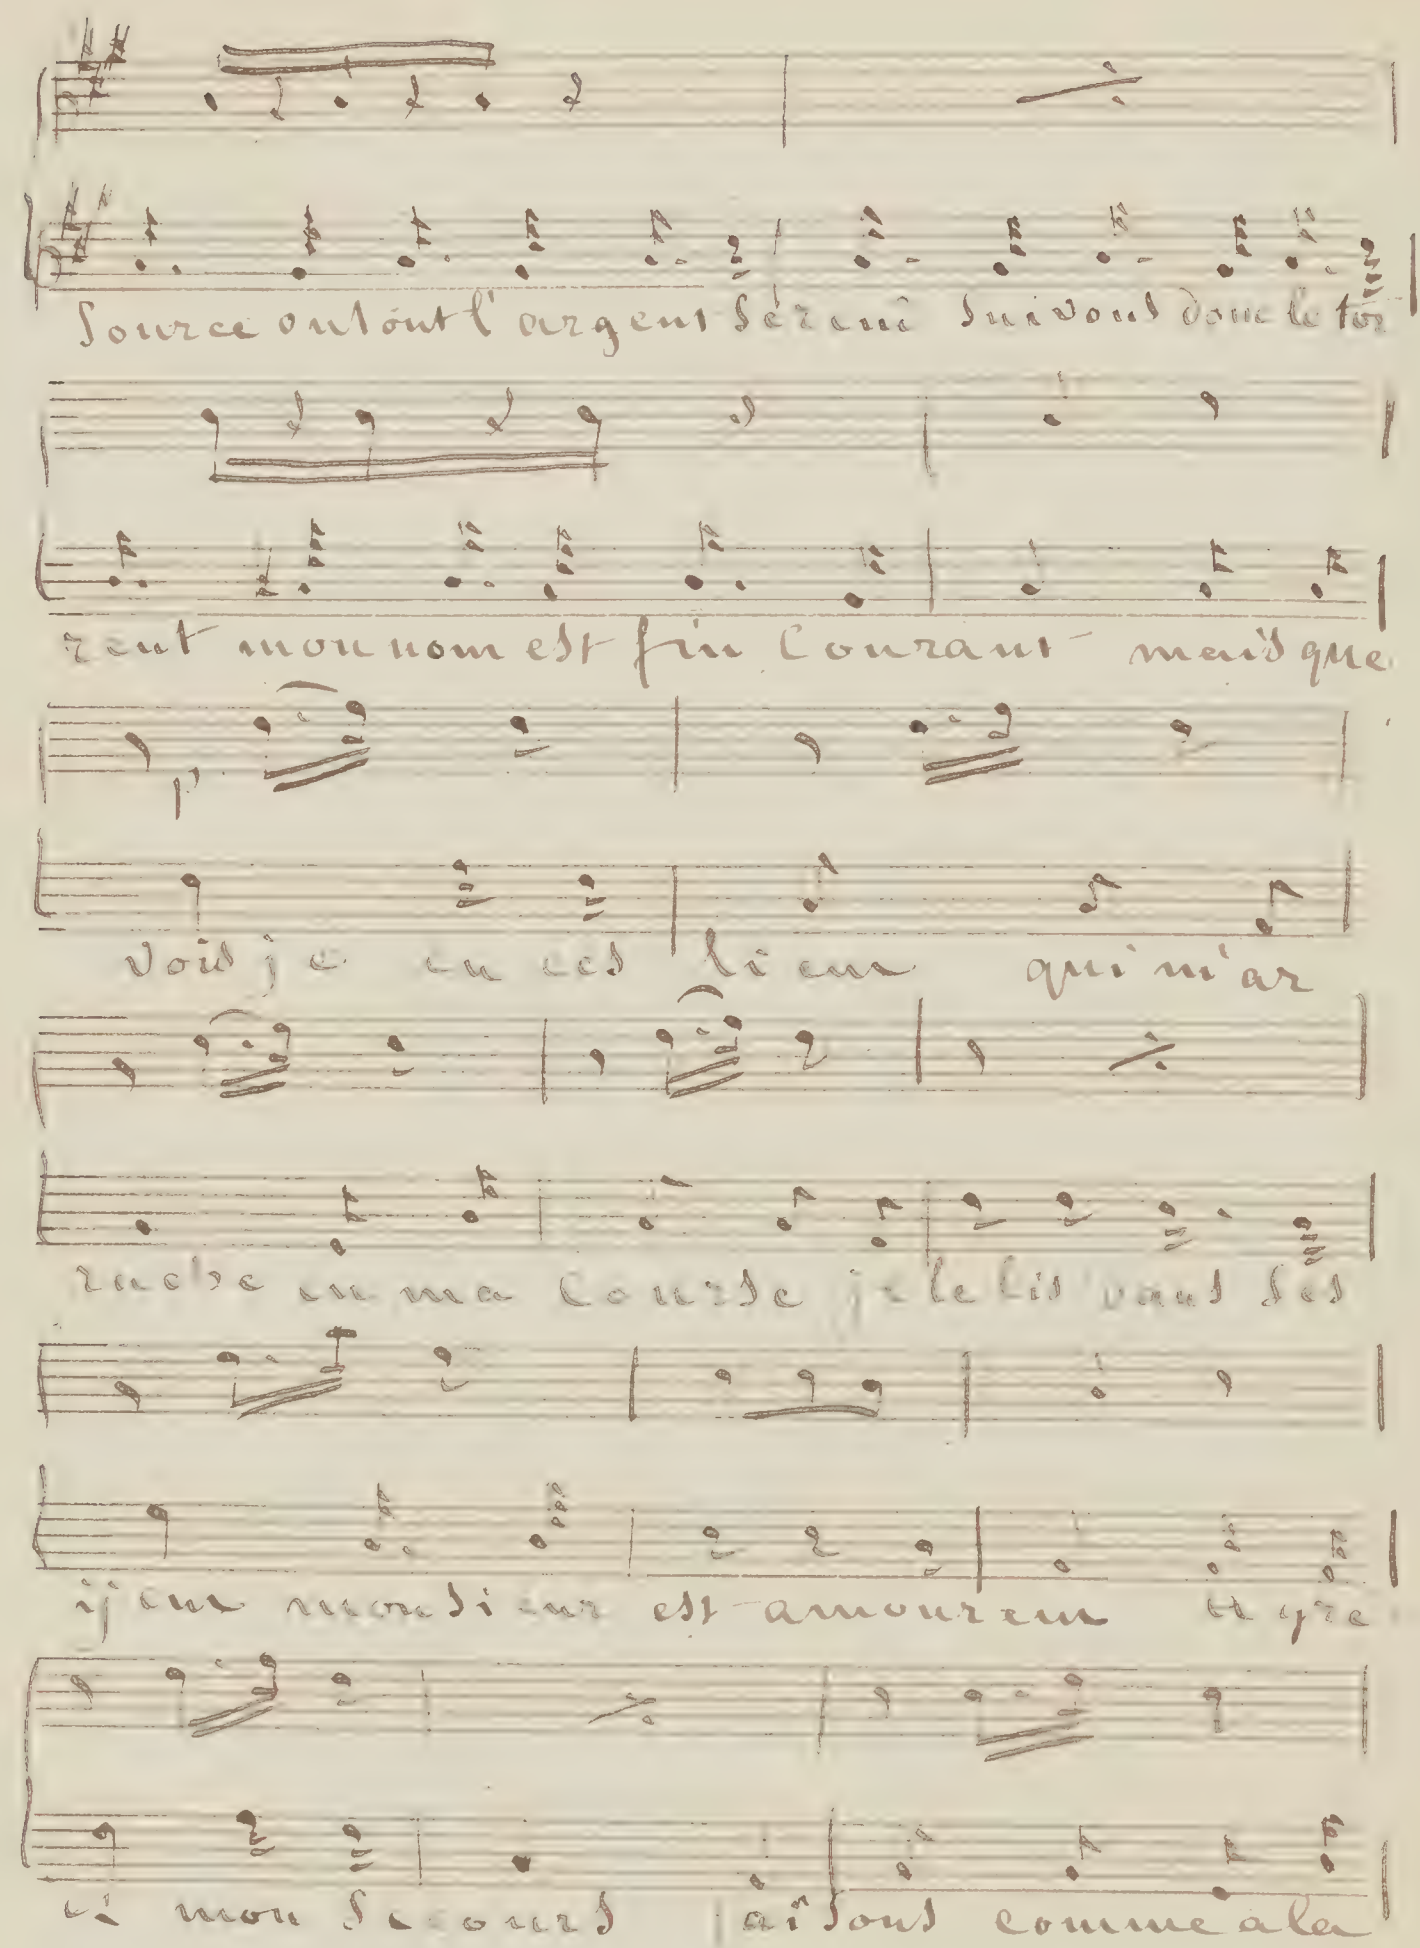 Source ou sont l'argent serein suivons donc le tor
rent mon nom est fin Courant mais que
vois je en ces lieux qui m'ar
rache en ma Course je le lis dans ses
ijeux monsieur est amoureux
p
mon secours faisons comme a la